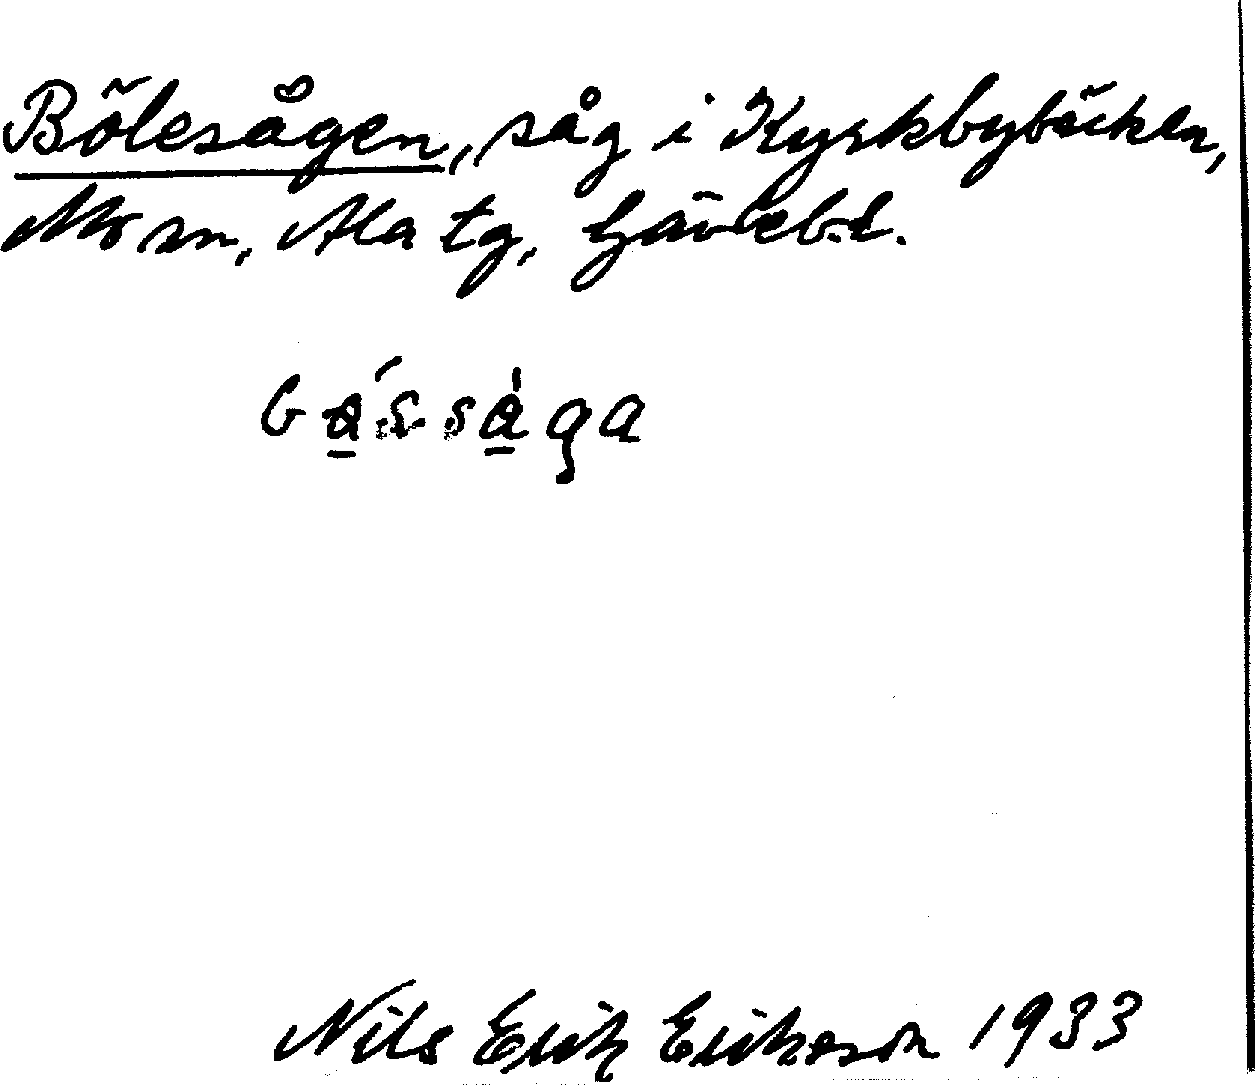 Bölesågen, såg i Kyrkbybäcken,
Mo sn, Ala tg, Gävlebd. l.
Nils Erik Erikson 1933